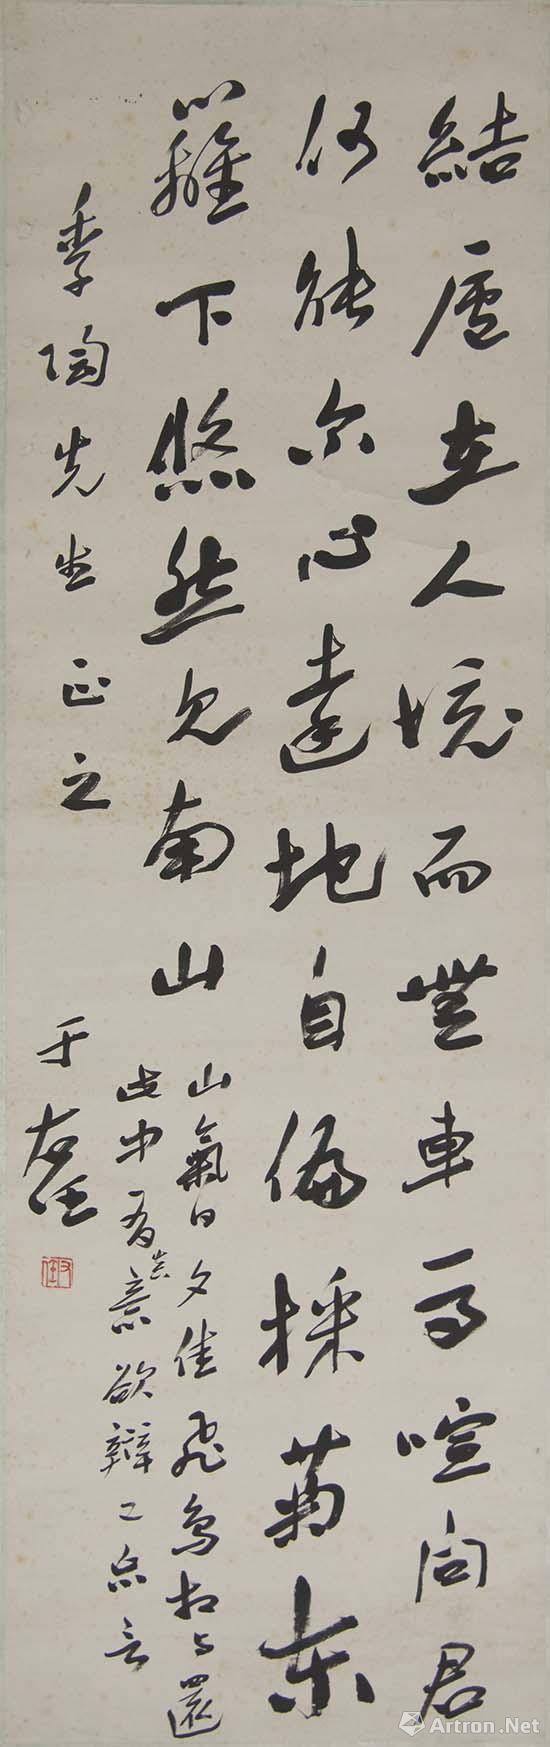 結廬在人境而無車馬喧問君
何能尔心遠地自偏採菊東
籬下悠然見南山
山氣日夕佳飛鳥相与還
此中有真意欲辯已忘言
季陶先生正之
于右任
右任
Artron.Net